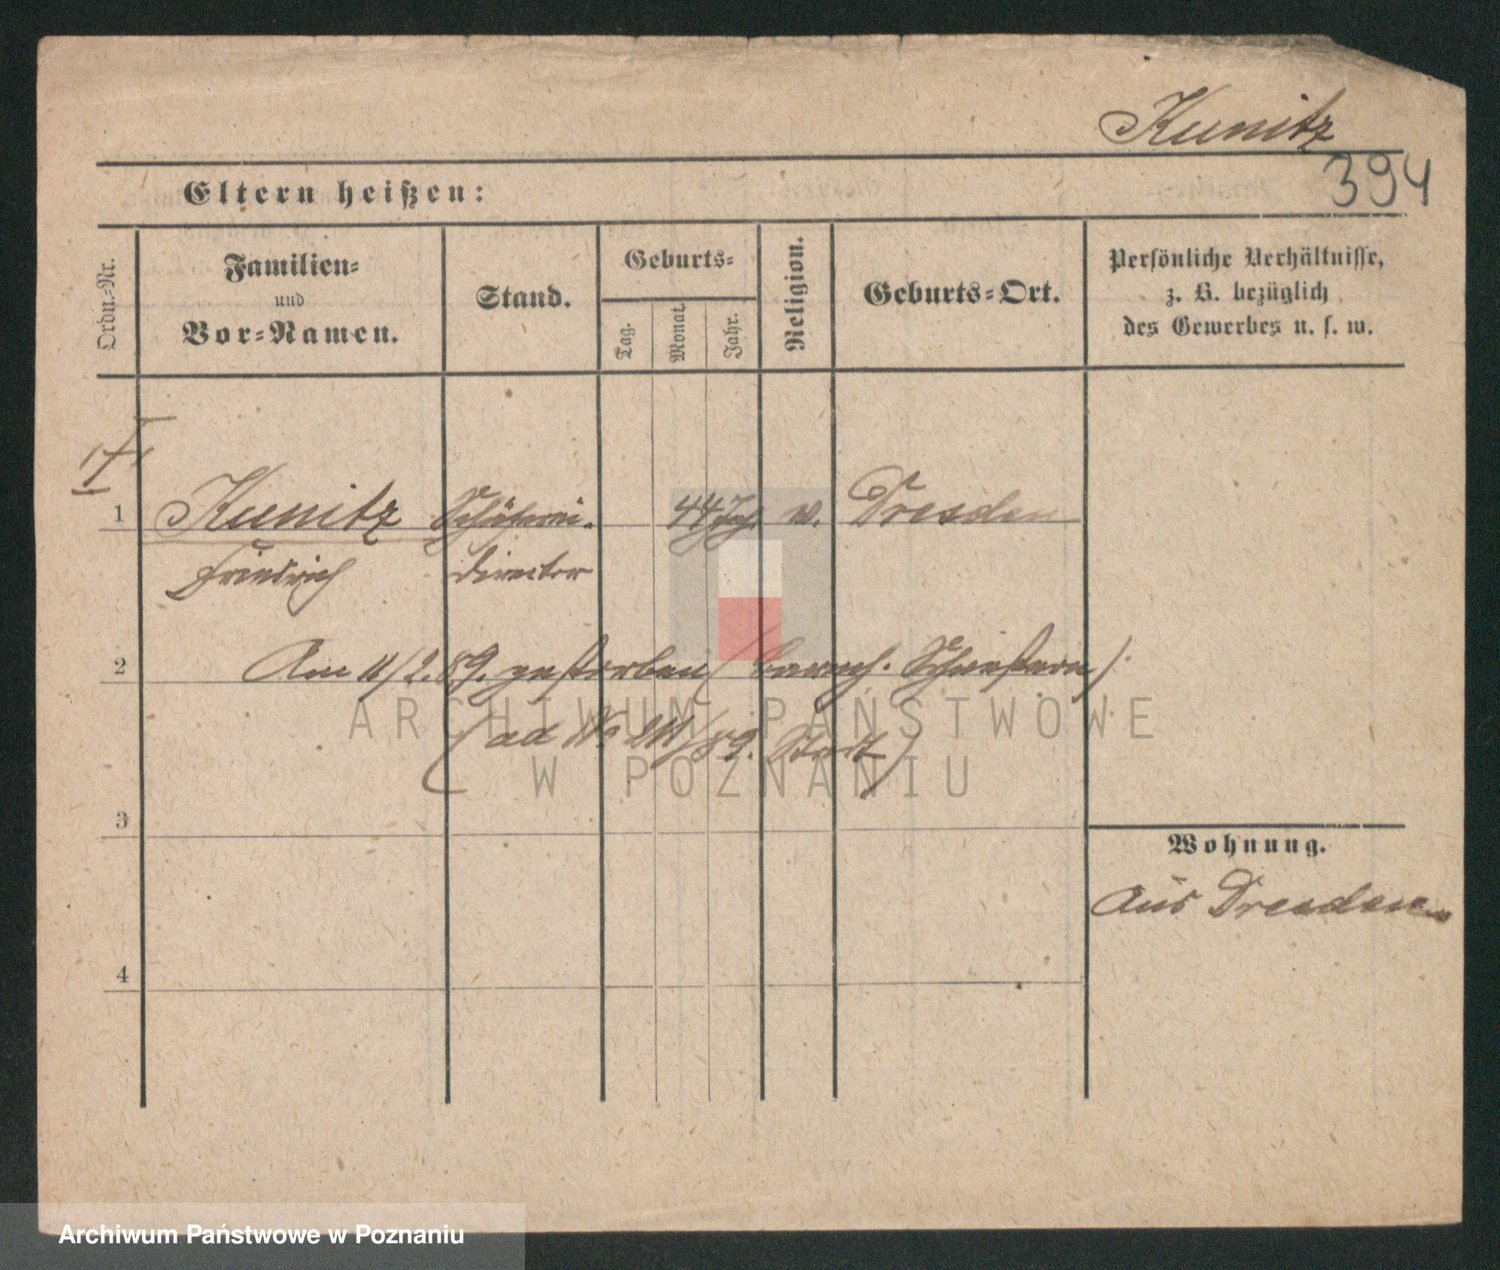 Kunitz
394
Eltern heißen:
Ordn.-Nr.
Familien-
und
Vor-Namen.
Stand.
Geburts-
Tag.
Monat.
Jahr.
Religion.
Geburts-Ort.
Persönliche Verhältnisse,
z. B. bezüglich
des Gewerbes u. s. w.
1 Kunitz Schäferei- 44 Jah. Dresden
Friedrich director
2 Am 11/2. 89. gestorben (barmh. Schwestern)
(ad No 211/89. Stadt)
3
Wohnung.
aus Dresden
4
ARCHIWUM PAŃSTWOWE
W POZNANIU
Archiwum Państwowe w Poznaniu